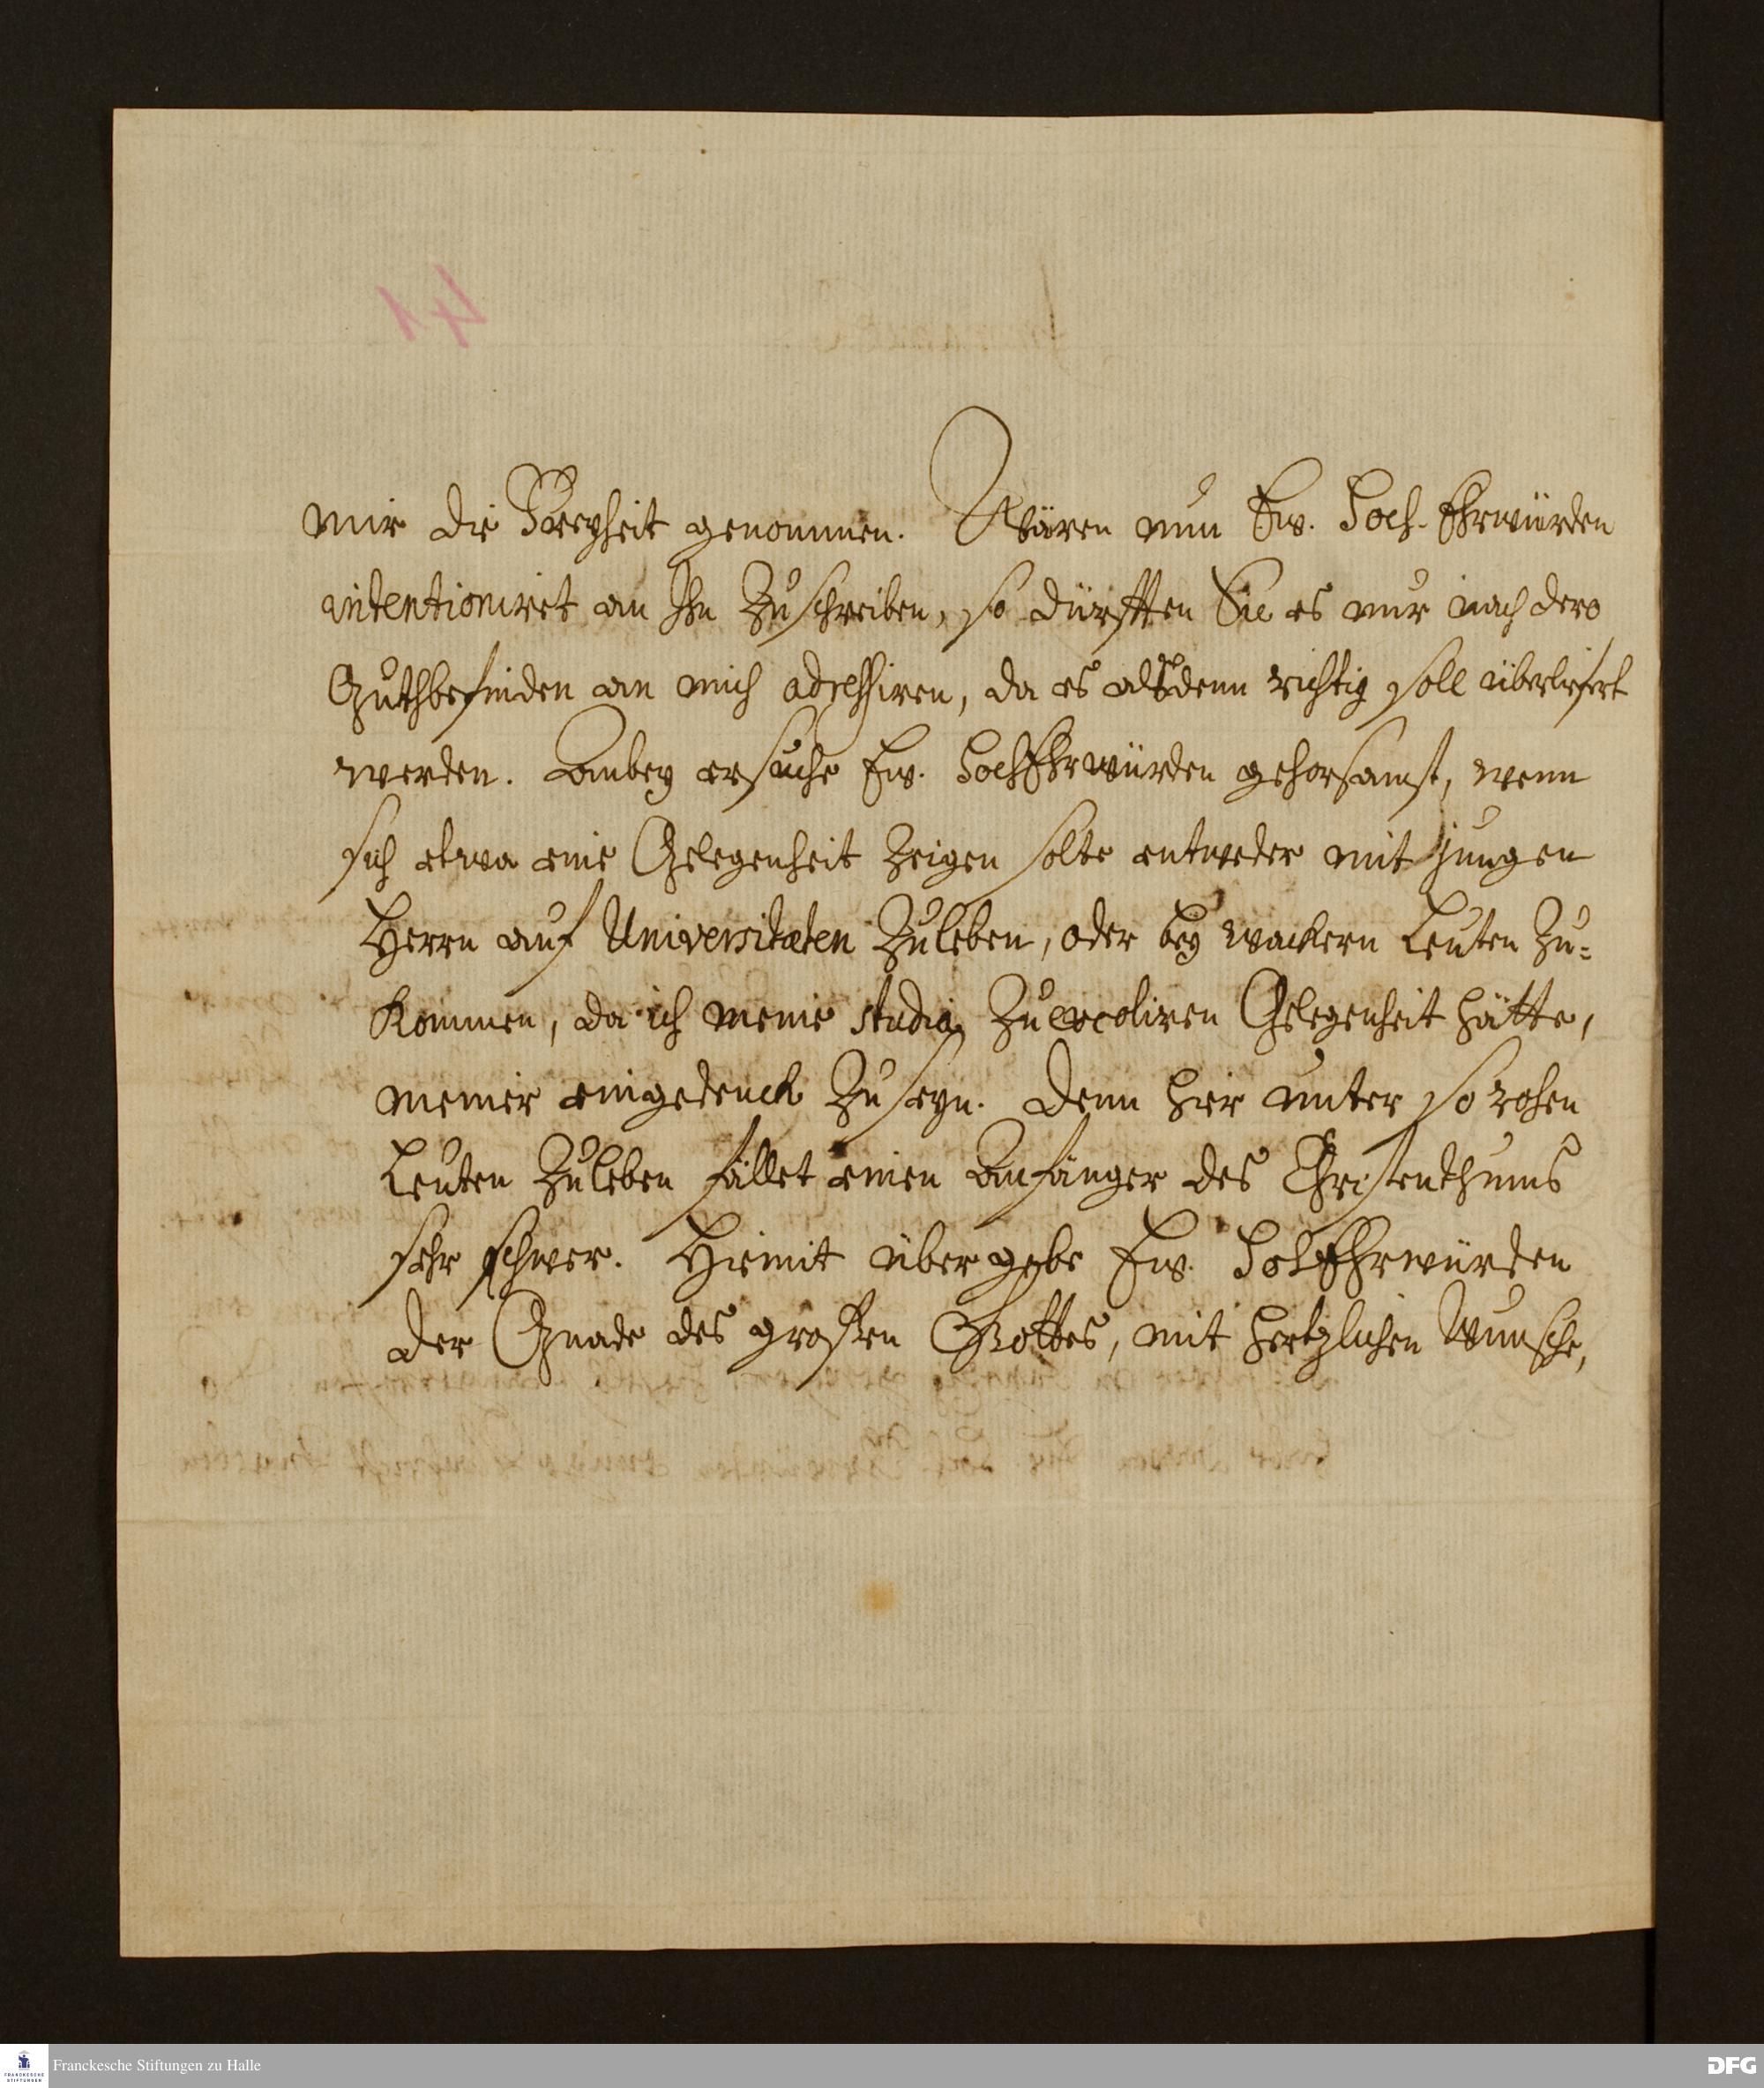 41
mir die Freyheit genommen. Wären nun Ew. Hoch-Ehrwürden
intentioniret an Ihn Zuschreiben, so dürfften Sie es nur nach dero
Guthbefinden an mich adressiren, da es alßdenn richtig soll überliefert
werden. Anbey ersuche Ew. HochEhrwürden gehorsamst, wenn
sich etwa eine Gelegenheit zeigen solte entweder mit jungen
Herrn auf Universitæten Zuleben, oder bey wackern Leuten Zu=
kommen, da ich meine studia Zu excoliren Gelegenheit hätte,
meiner eingedenck Zu seyn. Denn hier unter so rohen
Leuten Zuleben fället einen Anfänger des Christenthums
sehr schwer. Hiemit übergebe Ew. HochEhrwürden
der Gnade des grossen Gottes, mit hertzlichen Wunsche,
Franckesche Stiftungen zu Halle
FRANCKESCHE
STIFTUNGEN
DFG